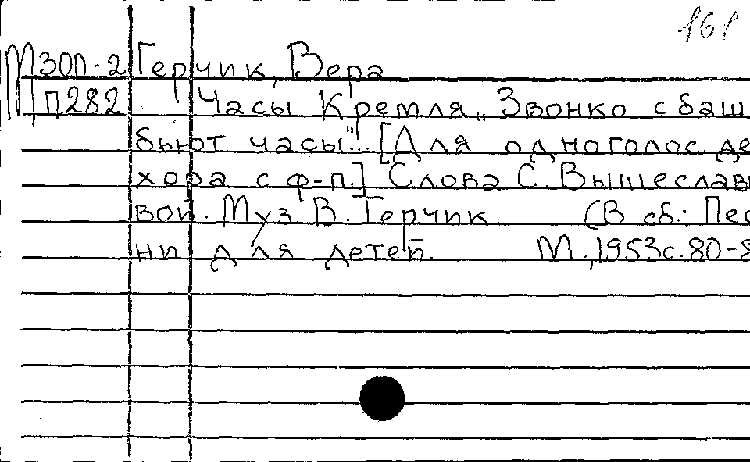 161
М30П-2 Герчик, Вера
М П282 Часы Кремля „Звонко с баш
бьют часы". [Для одноголос де
хора с ф-п.] Слова С. Вышеслав
вой. Муз В. Герчик (В сб.: Пес
ни для детей. М., 1953 с. 80-8